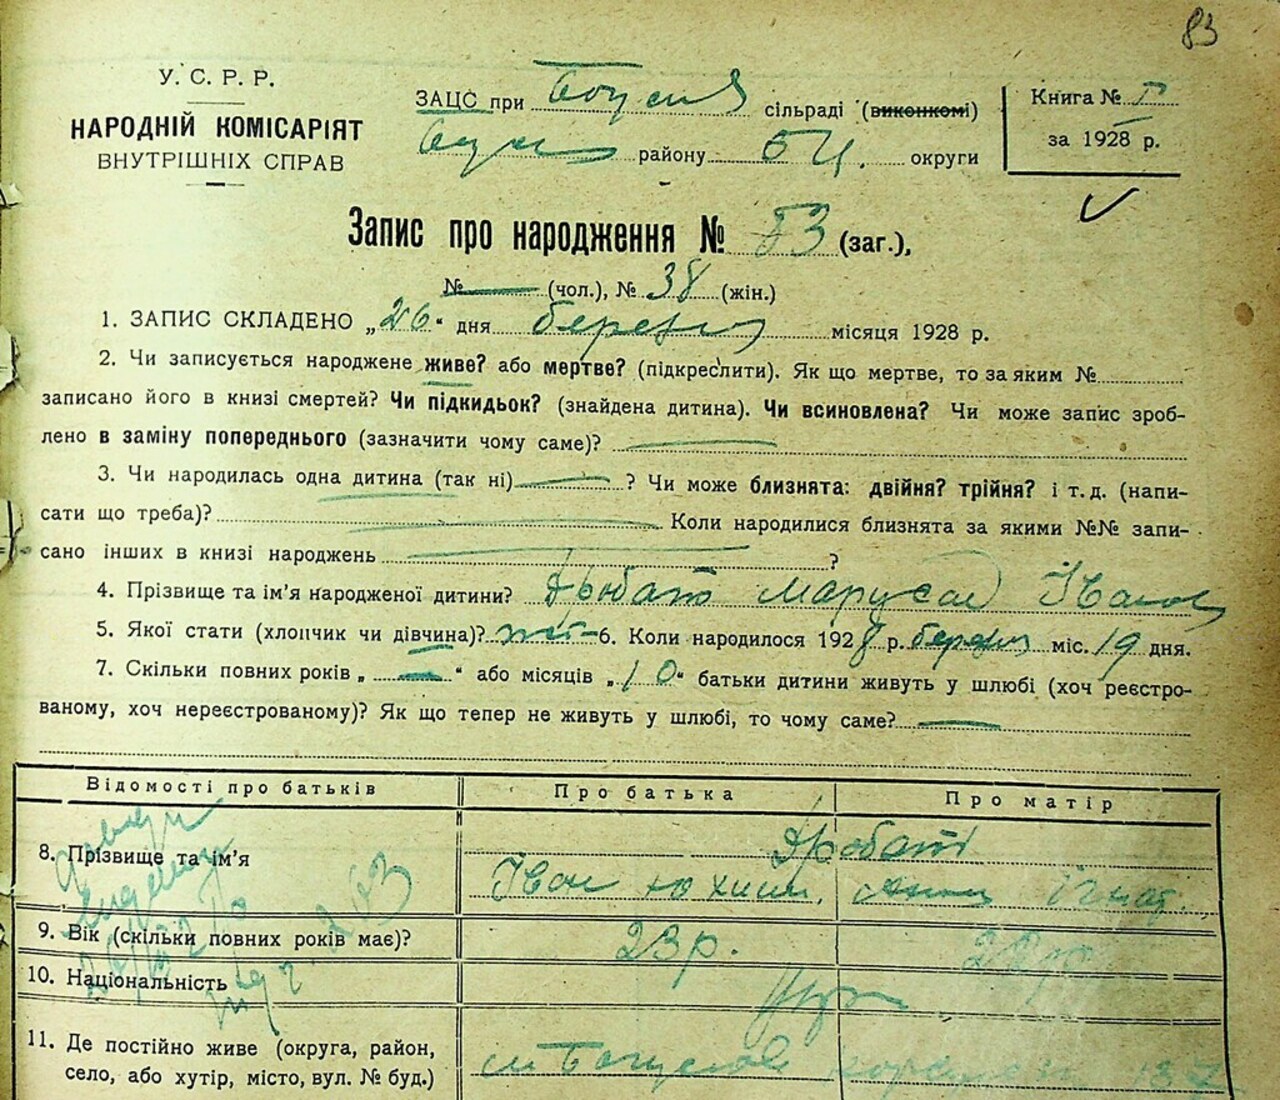 83
У. С. Р. Р.
НАРОДНІЙ КОМІСАРІЯТ
ВНУТРІШНІХ СПРАВ
ЗАЦС при сільраді (виконкомі)
району БЦ. округи
Книга №
за 1928 р.
Запис про народження № 83 (заг.),
№ (чол.), № 38 (жін.)
1. ЗАПИС СКЛАДЕНО „26“ дня березня місяця 1928 р.
2. Чи записується народжене живе? або мертве? (підкреслити). Як що мертве, то за яким №
записано його в книзі смертей? Чи підкидьок? (знайдена дитина). Чи всиновлена? Чи може запис зроб-
лено в заміну попереднього (зазначити чому саме)?
3. Чи народилась одна дитина (так ні) ? Чи може близнята: двійня? трійня? і т. д. (напи-
сати що треба)? Коли народилися близнята за якими №№ запи-
сано інших в книзі народжень ?
4. Прізвище та ім'я народженої дитини? Маруся
5. Якої стати (хлопчик чи дівчина)? 6. Коли народилося 1928 р. березня міс. 19 дня.
7. Скільки повних років „ — “ або місяців „10“ батьки дитини живуть у шлюбі (хоч реєстро-
ваному, хоч нереєстрованому)? Як що тепер не живуть у шлюбі, то чому саме? —
Відомості про батьків Про батька Про матір
8. Прізвище та ім'я
Іван Юхим.
9. Вік (скільки повних років має)? 23 р.
10. Національність укр
11. Де постійно живе (округа, район,
село, або хутір, місто, вул. № буд.) м Богуслав